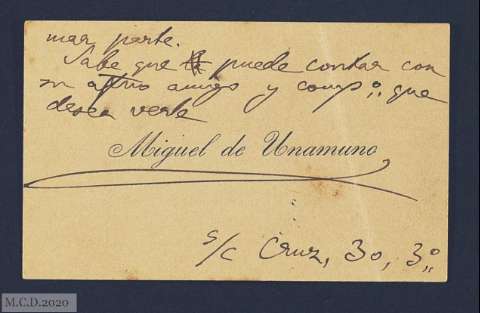 mar parte.
Sabe que puede contar con
su aftmo amigo y comp.º, que
desea verle
Miguel de Unamuno
s/c Cruz, 30, 3.º
M.C.D.2020